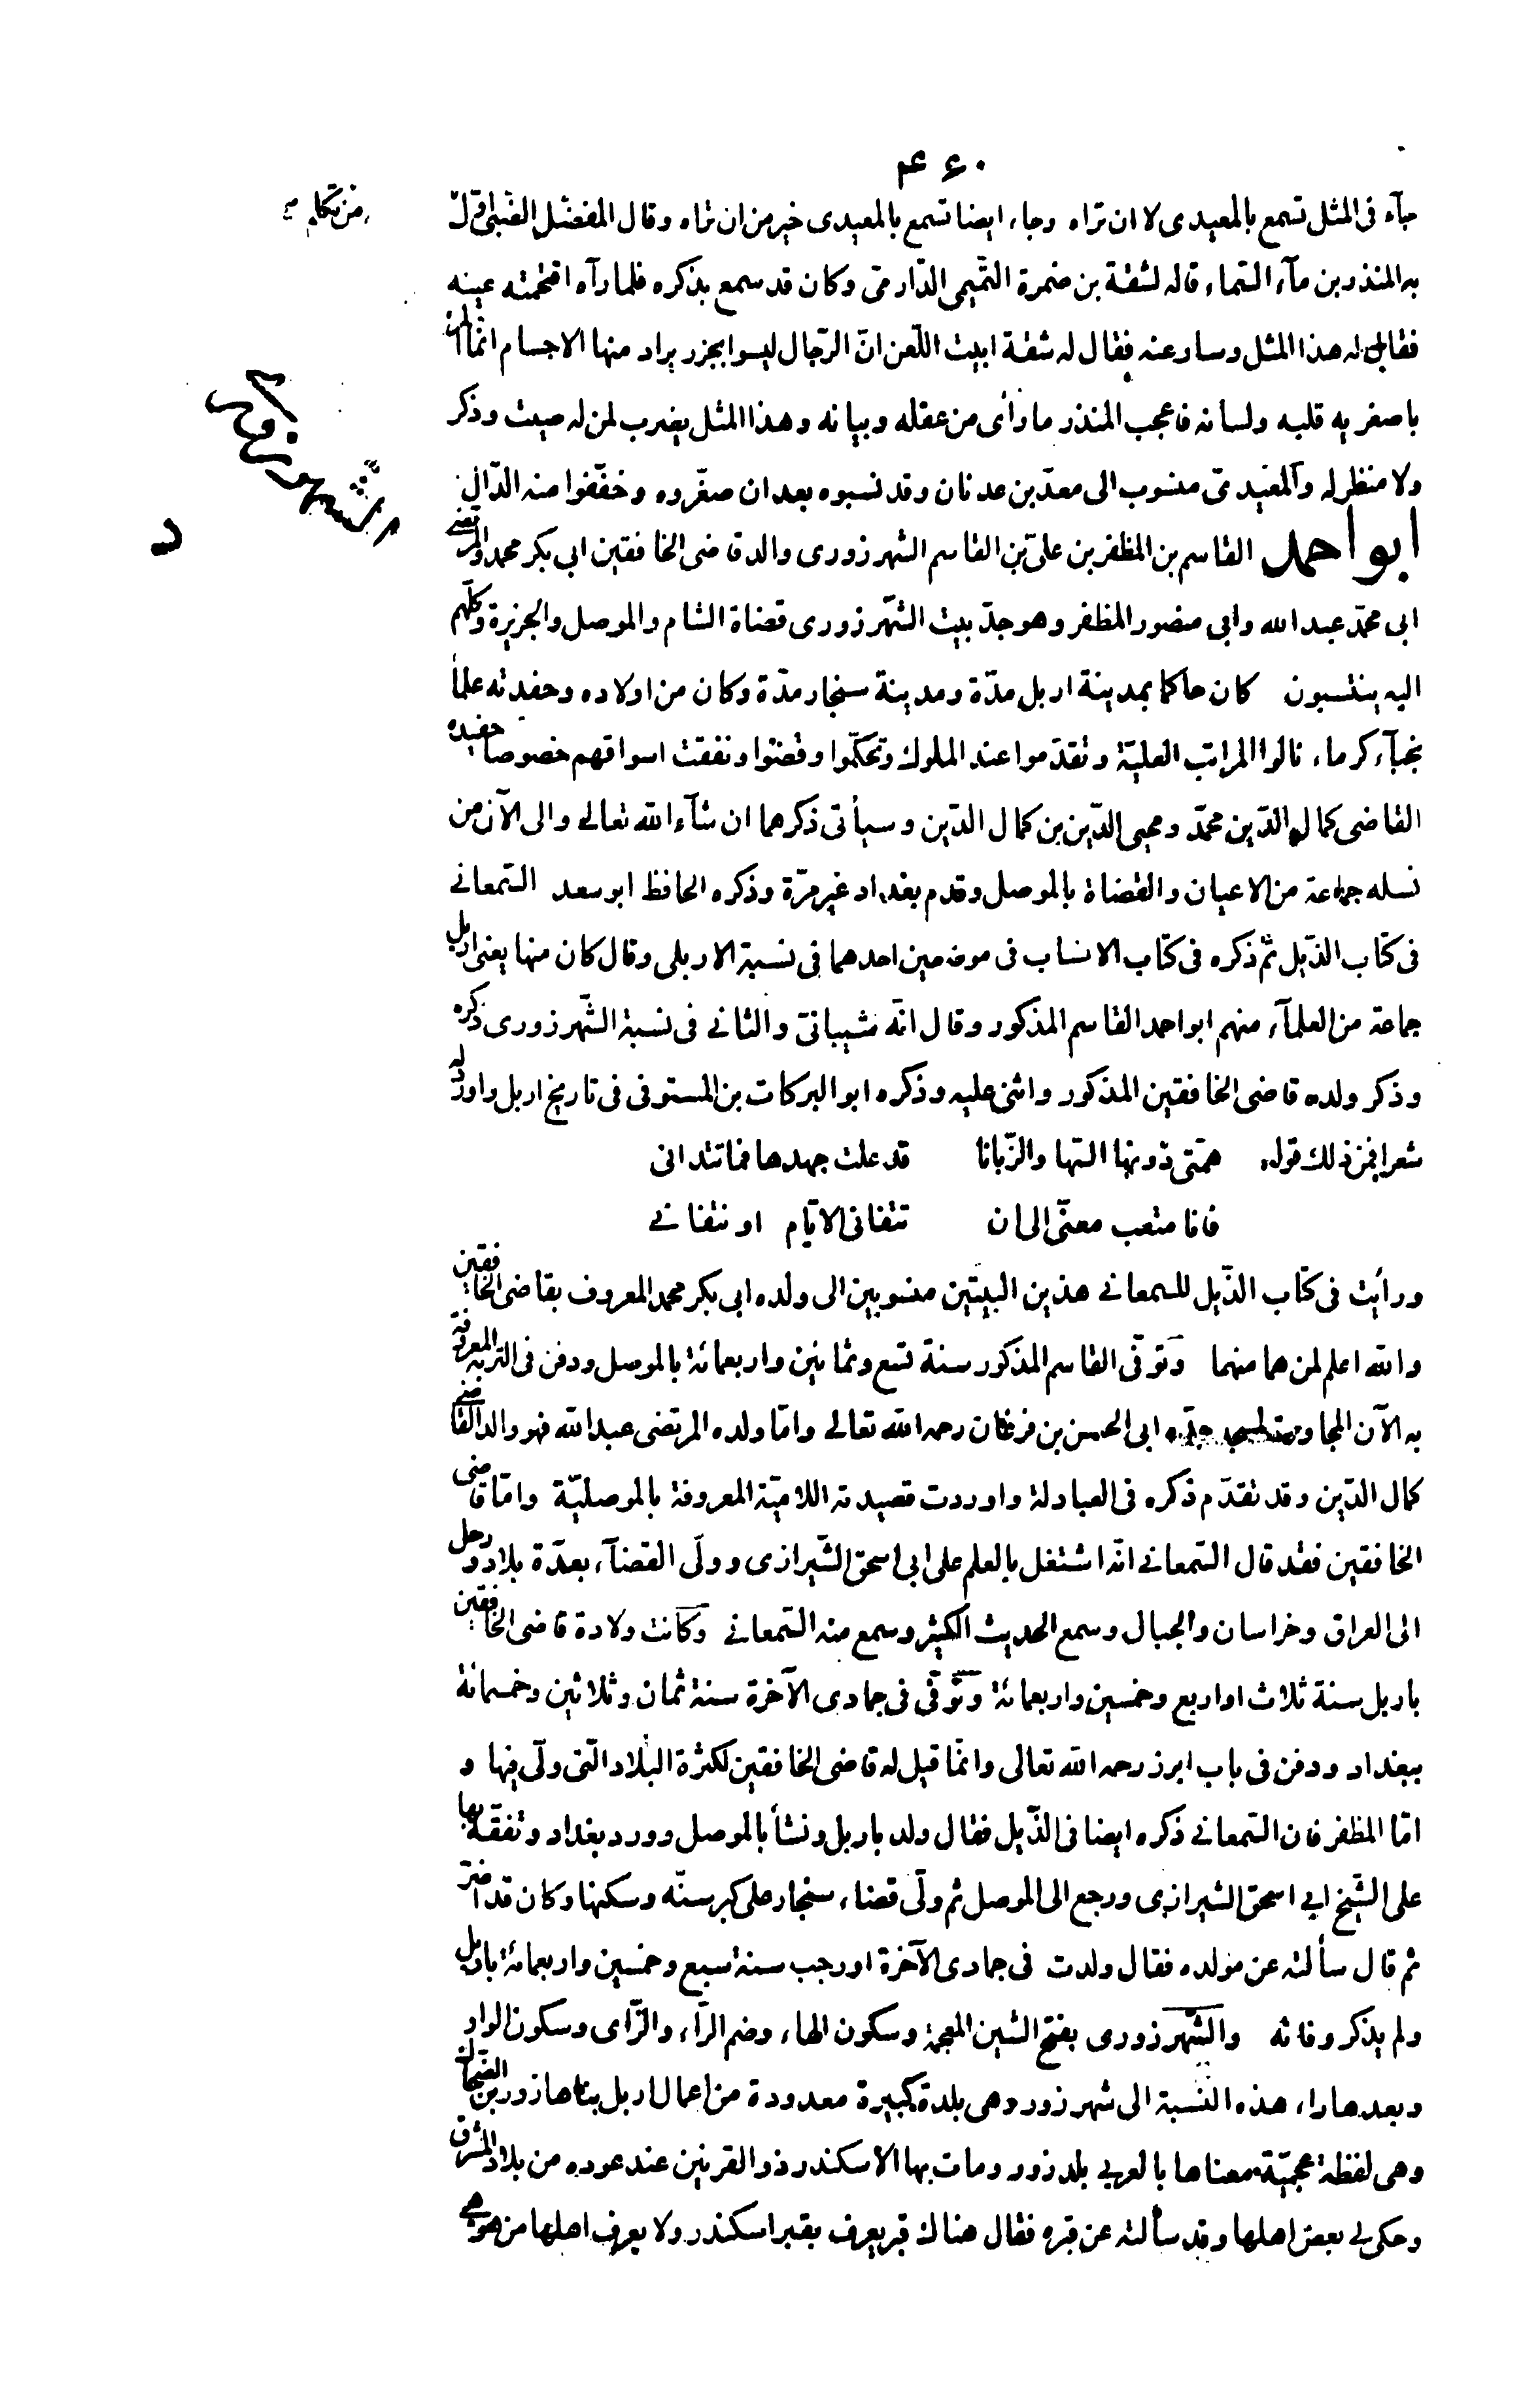 ۴۶۰
جآء فى المثل تسمع بالمعيدى لا ان تراه وجاء ايضا تسمع بالمعيدى خير من ان تراه وقال المفضل الضبى اوّل
من تكلم
به المنذر بن مآء السّماء قاله لشقة بن ضمرة التّميمى الدّارمىّ وكان قد سمع بذكره فلما رآه اقتحمته عينه
فقال له هذا المثل وسار عنه فقال له شقة ابيت اللّعن انّ الرّجال ليسوا بجزر يراد منها الاجسام انّما المرء
باصغريه قلبه ولسانه فاعجب المنذر ما رأى من عقله وبيانه وهذا المثل يضرب لمن له صيت وذكر
ولا منظر له والمعيدىّ منسوب الى معدّ بن عدنان وقد نسبوه بعد ان صغّروه وخفّفوا منه الدّال
ابو احمد القاسم بن المظفر بن علىّ بن القاسم الشهرزورى والد قاضى الخافقين ابى بكر محمد والمرتضى
الشّهرزورى
ابى محمّد عبد الله وابى منصور المظفر وهو جدّ بيت الشّهرزورى قضاة الشام والموصل والجزيرة وكلّهم
اليه ينتسبون كان حاكما بمدينة اربل مدّة ومدينة سنجار مدّة وكان من اولاده وحفدته علمآء
نجبآء كرماء نالوا المراتب العليّة وتقدّموا عند الملوك وتحكّموا وقضوا ونفقت اسواقهم خصوصا حفيده
القاضى كمال الدّين محمّد ومحيى الدّين بن كمال الدّين وسيأتى ذكرهما ان شآء الله تعالى والى الآن من
نسله جماعة من الاعيان والقضاة بالموصل وقدم بغداد غير مرّة وذكره الحافظ ابو سعد السّمعانى
فى كتاب الذّيل ثمّ ذكره فى كتاب الانساب فى موضعين احدهما فى نسبة الاربلى وقال كان منها يعنى اربل
جماعة من العلمآء منهم ابو احمد القاسم المذكور وقال انّه شيبانىّ والثانى فى نسبة الشّهرزورى ذكره
وذكر ولده قاضى الخافقين المذكور واثنى عليه وذكره ابو البركات بن المستوفى فى تاريخ اربل واورد له
شعرا فمن ذلك قوله همّتى دونها السّها والزّبانا قد علت جهدها فما تتدانى
فانا متعب معنّى الى ان تتفانى الايّام او نتفانى
ورأيت فى كتاب الذّيل للسمعانى هذين البيتين منسوبين الى ولده ابى بكر محمد المعروف بقاضى الخافقين
والله اعلم لمن هما منهما وتوفّى القاسم المذكور سنة تسع وثمانين واربعمائة بالموصل ودفن فى التربة المعروفة
به الآن المجاورة لمسجد جدّه ابى الحسن بن فرغان رحمه الله تعالى وامّا ولده المرتضى عبد الله فهو والد القاضى
كمال الدّين وقد تقدّم ذكره فى العبادلة واوردت قصيدته اللاميّة المعروفة بالموصليّة وامّا قاضى
الخافقين فقد قال السّمعانى انّه اشتغل بالعلم على ابى اسحق الشّيرازى وولّى القضآء بعدّة بلاد ورحل
الى العراق وخراسان والجبال وسمع الحديث الكثير وسمع منه السّمعانى وكانت ولادة قاضى الخافقين
باربل سنة ثلاث او اربع وخمسين واربعمائة وتوّفّى فى جمادى الآخرة سنة ثمان وثلاثين وخمسمائة
ببغداد ودفن فى باب ابرز رحمه الله تعالى وانّما قيل له قاضى الخافقين لكثرة البلاد الّتى ولّى فيها و
امّا المظفر فان السّمعانى ذكره ايضا فى الذّيل فقال ولد باربل ونشأ بالموصل وورد بغداد وتفقّه بها
على الشّيخ ابى اسحق الشيرازى ورجع الى الموصل ثم ولّى قضاء سنجار على كبر سنّه وسكنها وكان قد اضرّ
ثم قال سألته عن مولده فقال ولدت فى جمادى الآخرة او رجب سنة سبع وخمسين واربعمائة باربل
ولم يذكر وفاته والشّهرزورى بفتح الشين المعجمة وسكون الهاء وضم الرّاء والزّاى وسكون الواو
وبعدها راء هذه النّسبة الى شهرزور وهى بلدة كبيرة معدودة من اعمال اربل بناها زور بن الضّحاك
وهى لفظة عجميّة معناها بالعربى بلد زور ومات بها الاسكندر ذو القرنين عند عوده من بلاد المشرق
وحكى لى بعض اهلها وقد سألته عن قبره فقال هناك قبر يعرف بقبر اسكندر ولا يعرف اهلها من هو وهى